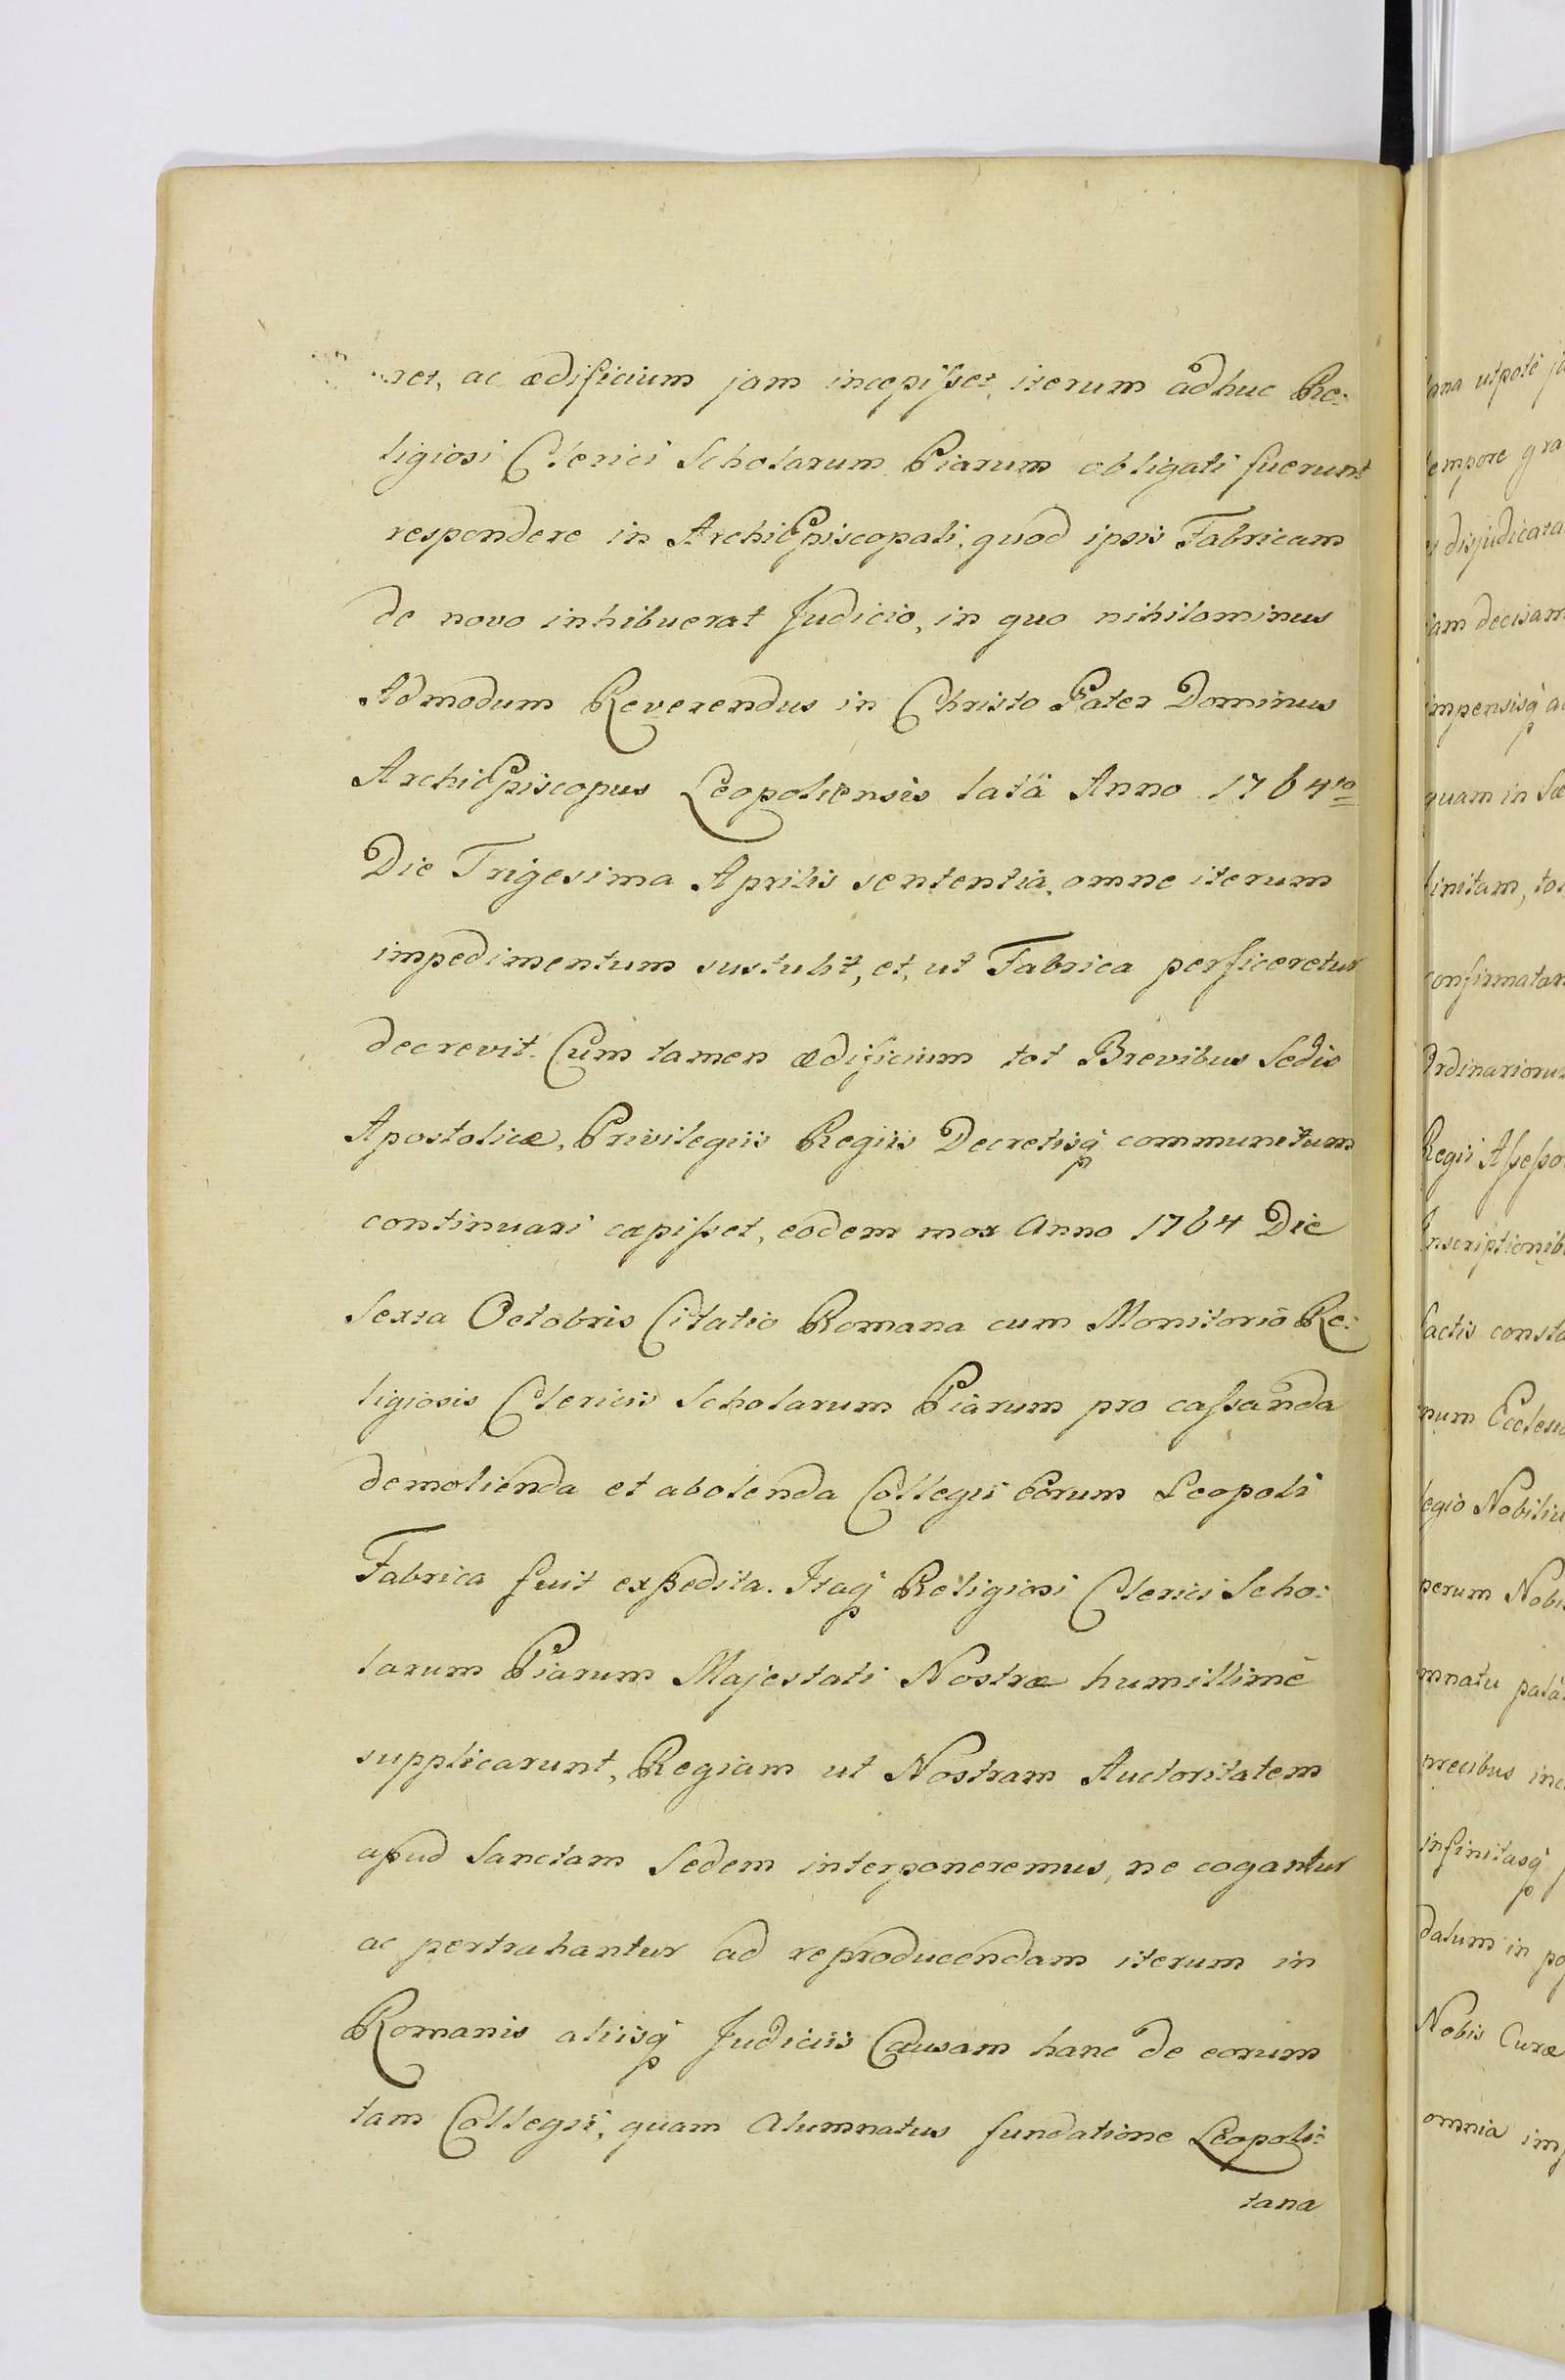 ret, ac ædificium jam incepisset, iterum adhuc Re:
ligiosi Clerici Scholarum Piarum obligati fuerunt
respondere in ArchiEpiscopali, quod ipsis Fabricam
de novo inhibuerat Judicio, in quo nihilominus
Admodum Reverendus in Christo Pater Dominus
ArchiEpiscopus Leopoliensis latâ Anno 1764to
Die Trigesima Aprilis sententia, omne iterum
impedimentum sustulit, et, ut Fabrica perficeretur
decrevit. Cum tamen ædificium tot Brevibus Sedis
Apostolicæ, Privilegiis Regiis Decretisq communitum
continuari cæpisset, eodem mox Anno 1764 Die
Sexta Octobris Citatio Romana cum Monitorio Re:
ligiosis Clericis Scholarum Piarum pro cassanda
demolienda et abolenda Collegii eorum Leopoli
Fabrica fuit expedita. Itaq Religiosi Clerici Scho:
larum Piarum Majestati Nostræ humillimè
supplicarunt, Regiam ut Nostram Auctoritatem
apud Sanctam Sedem interponeremus, ne cogantur
ac pertrahantur ad reproducendam iterum in
Romanis aliisq Judiciis Causam hanc de eorum
tam Collegii, quam Alumnatus fundatione Leopoli:
tana
ana utpote
empore gra
disjudicata
am decisam
impensisq
quam in
initam,
onfirmatam
Ordinariorum
Regii Assesso
Inscriptionib
factis consta
num Ecclesi
legio Nobiliu
perum Nobi
mnatu
precibus
infinitasq
datum in
Nobis Curæ
omnia